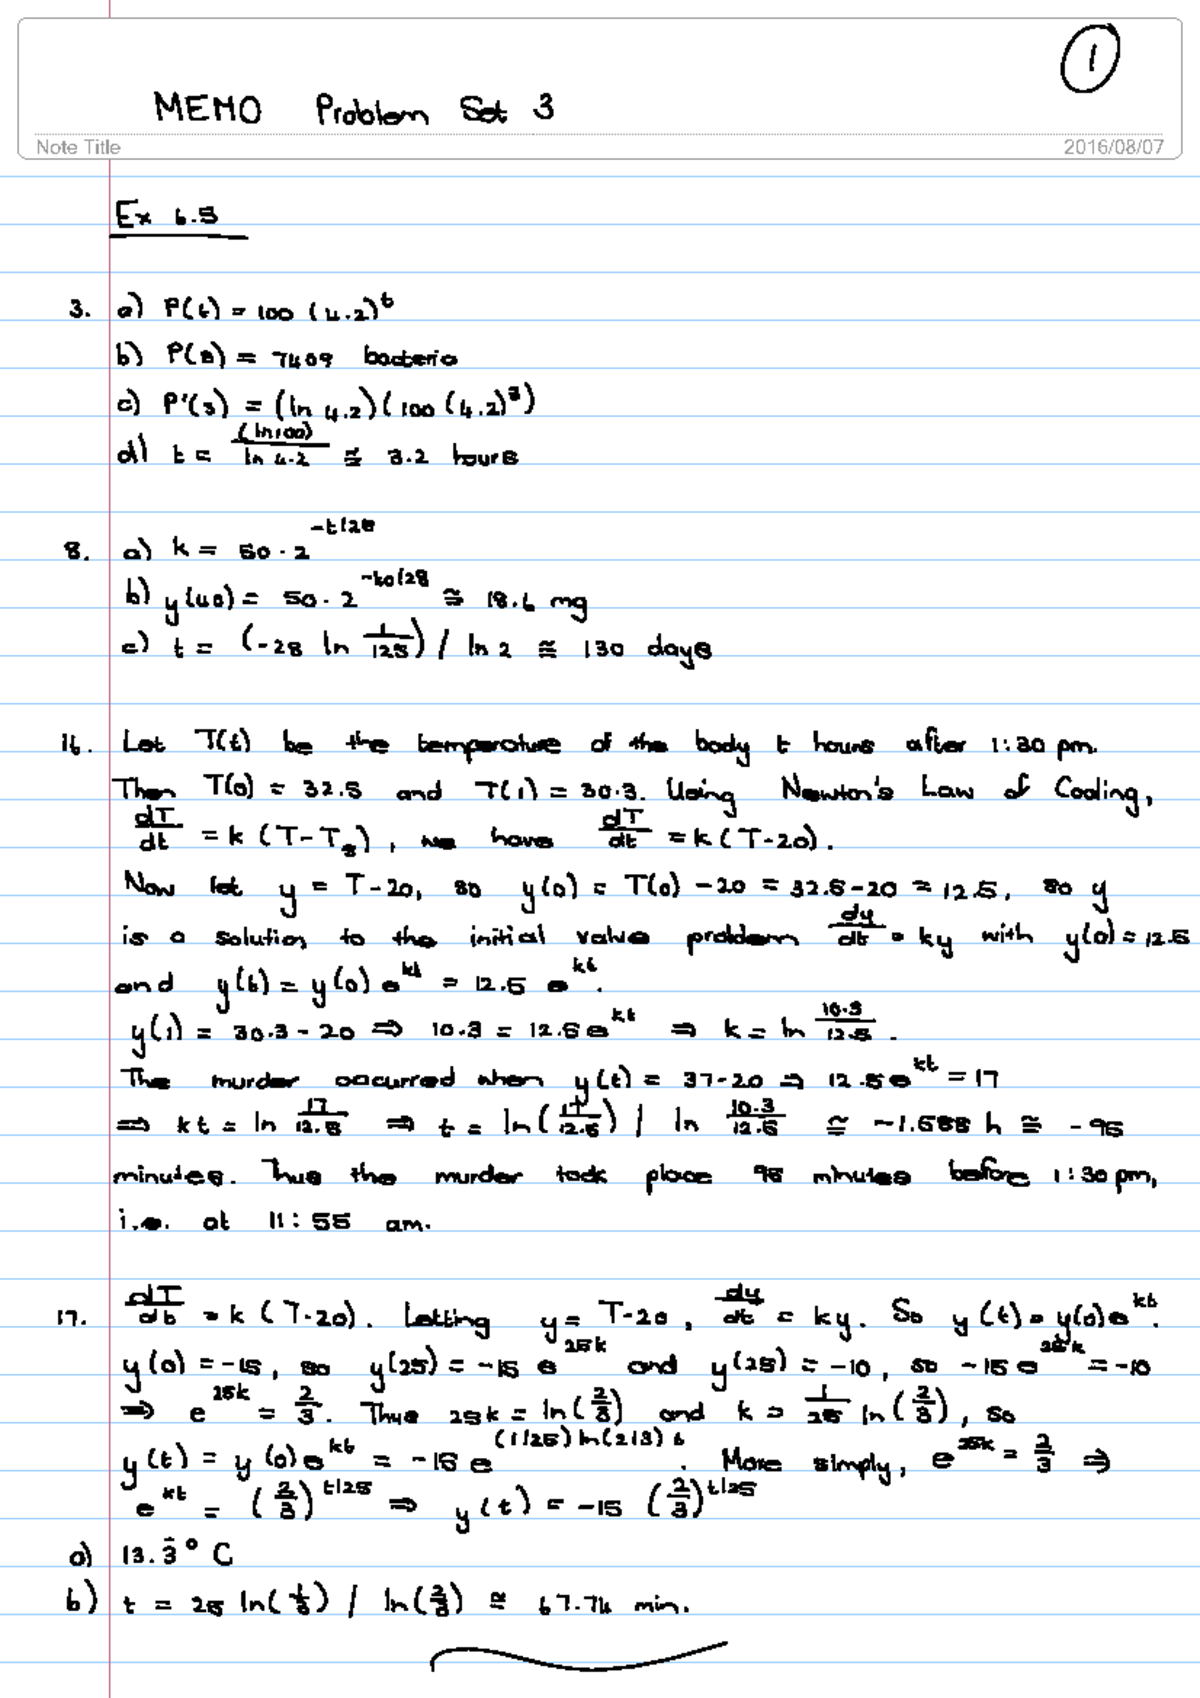 1
MEMO Problem Set 3
Note Title
2016/08/07
Ex 6.5
3. a) P(t) = 100 (4.2)^t
b) P(3) = 7409 bacteria
c) P'(3) = (ln 4.2)(100 (4.2)^3)
d) t = (ln 100)/ln 4.2 ≅ 3.2 hours
8. a) k = 50 · 2^(-t/28)
b) y(40) = 50 · 2^(-40/28) ≅ 18.6 mg
c) t = (-28 ln 1/125) / ln 2 ≅ 130 days
16. Let T(t) be the temperature of the body t hours after 1:30 pm.
Then T(0) = 32.5 and T(1) = 30.3. Using Newton's Law of Cooling,
dT/dt = k (T - T_s), we have dT/dt = k (T-20).
Now let y = T-20, so y(0) = T(0) - 20 = 32.5-20 = 12.5, so y
is a solution to the initial value problem dy/dt = ky with y(0) = 12.5
and y(t) = y(0) e^kt = 12.5 e^kt.
y(1) = 30.3 - 20 ⇒ 10.3 = 12.5e^kt ⇒ k = ln 10.3/12.5.
The murder occurred when y(t) = 37-20 ⇒ 12.5e^kt = 17
⇒ kt = ln 17/12.5 ⇒ t = ln(17/12.5) / ln 10.3/12.5 ≅ -1.588 h ≅ -95
minutes. Thus the murder took place 95 minutes before 1:30 pm,
i.e. at 11:55 am.
17. dT/dt = k (T-20). Letting y = T-20, dy/dt = ky. So y(t) = y(0)e^kt.
y(0) = -15, so y(25) = -15 e^25k and y(25) = -10, so -15 e^25k = -10
⇒ e^25k = 2/3. Thus 25k = ln(2/3) and k = 1/25 ln(2/3), so
y(t) = y(0)e^kt = -15 e^(1/25) ln(2/3) t. More simply, e^25k = 2/3 ⇒
e^kt = (2/3)^t/25 ⇒ y(t) = -15 (2/3)^t/25
a) 13.3̇° C
b) t = 25 ln(1/3) / ln(2/3) ≅ 67.74 min.